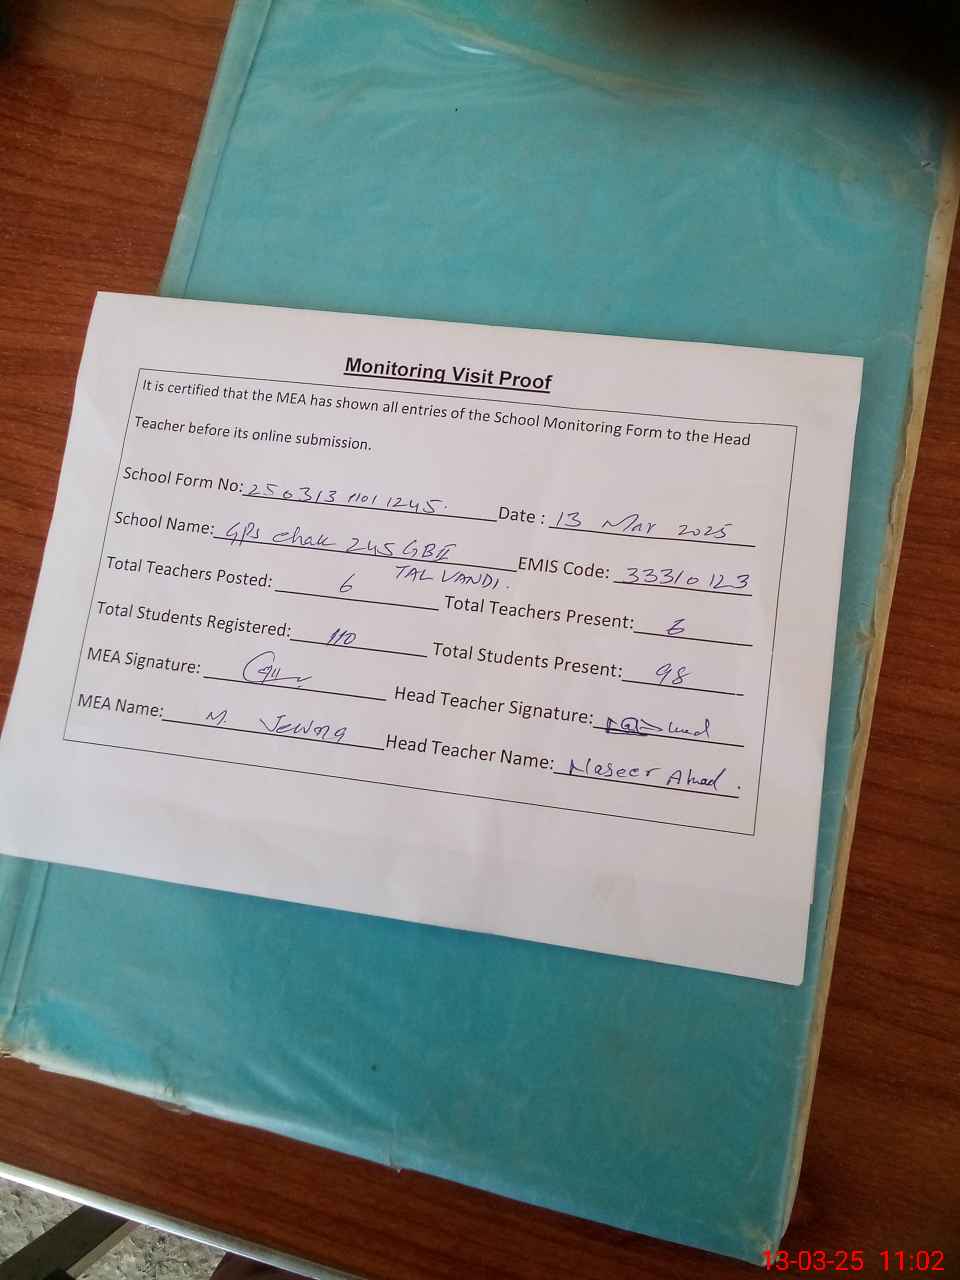 Monitoring Visit Proof
It is certified that the MEA has shown all entries of the School Monitoring Form to the Head
Teacher before its online submission.
School Form No: 250313 1101 1245. Date : 13 Mar 2025
School Name: GPS Chak 245 GB II TALVANDI. EMIS Code: 33310123
Total Teachers Posted: 6 Total Teachers Present: 6
Total Students Registered: 110 Total Students Present: 98
MEA Signature: Head Teacher Signature:
MEA Name: M. Head Teacher Name: Naseer Ahad.
13-03-25 11:02